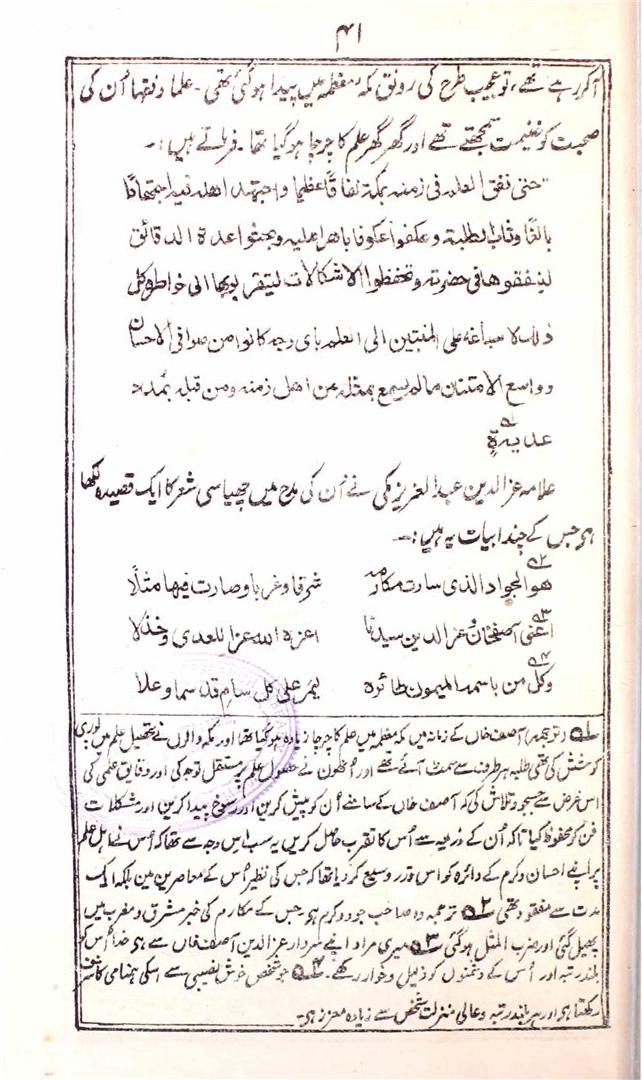 ۴۱
آکر رہے تھے، تو عجیب طرح کی رونق مکہ معظمہ میں پیدا ہوگئی تھی۔ علما و فقہا اُن کی
صحبت کو غنیمت سمجھتے تھے اور گھر گھر علم کا چرچا ہوگیا تھا۔ فرماتے ہیں:۔
"حتی نفق العلم فی زمنہ بمکۃ نفاقًا عظیما واجتہد اھلہ فیہ اجتھادًا
بالغًا وثاب الطلبۃ وعکفوا عکوفا باھرا علیہ وبحثوا عدۃ الدقائق
لینفقوھا فی حضرتہ وتحفظوا الاشکالات لیتقربوا بھا الی خواطرہ کل
ذٰلک لاسباغہ علی المنتمین الی العلم بای وجہ کانوا من صوافی الاحسان
وواسع الامتنان مالم یسمع بمثلہ من اھل زمنہ ومن قبلہ بمدد
عدیدۃٍ ؎۱
علامہ عز الدین عبد العزیز مکی نے اُن کی مدح میں چھیاسی شعر کا ایک قصیدہ لکھا
ہی جس کے چند ابیات یہ ہیں:۔
؎۲ ھو الجواد الذی سارت مکارمہ شرقا وغربا وصارت فیھا مثلًا
؎۳ اعنی آصفخان عز الدین سیدنا اعزہ اللہ عزا للعدی وخذلا
؎۴ وکل من باسمہ المیمون طائرہ یمر علی کل سامٍ قد سما وعلا
؎۱ (ترجمہ) آصف خاں کے زمانہ میں مکہ معظمہ میں علم کا چرچا زیادہ ہوگیا تھا اور مکہ والوں نے تحصیل علم میں پوری
کوشش کی تھی طلبہ ہر طرف سے سمٹ آئے تھے اور اُنھوں نے حصول علم پر مستقل توجہ کی اور دقایق علمی کی
اس غرض سے جستجو و تلاش کی کہ آصف خاں کے سامنے اُن کو پیش کریں اور رسوخ پیدا کریں اور مشکلات
فن کو محفوظ کیا تاکہ اُن کے ذریعہ سے اُس کا تقرب حاصل کریں یہ سب اس وجہ سے تھا کہ اُس نے اہل علم
پر اپنے احسان و کرم کے دائرہ کو اس قدر وسیع کردیا تھا کہ جس کی نظیر اُس کے معاصرین میں بلکہ ایک
مدت سے مفقود تھی ؎۲ ترجمہ وہ صاحب جود و کرم ہی جس کے مکارم کی خبر مشرق و مغرب میں
پھیل گئی اور ضرب المثل ہوگئی ؎۳ میری مراد اپنے سردار عز الدین آصف خاں سے ہی خدا اُس کو
بلند رتبہ اور اُس کے دشمنوں کو ذلیل و خوار رکھے۔ ؎۴ جو شخص خوش نصیبی سے اسکی ہمنامی کا شرف
رکھتا ہی اور ہر بلند رتبہ و عالی منزلت شخص سے زیادہ معزز ہی۔